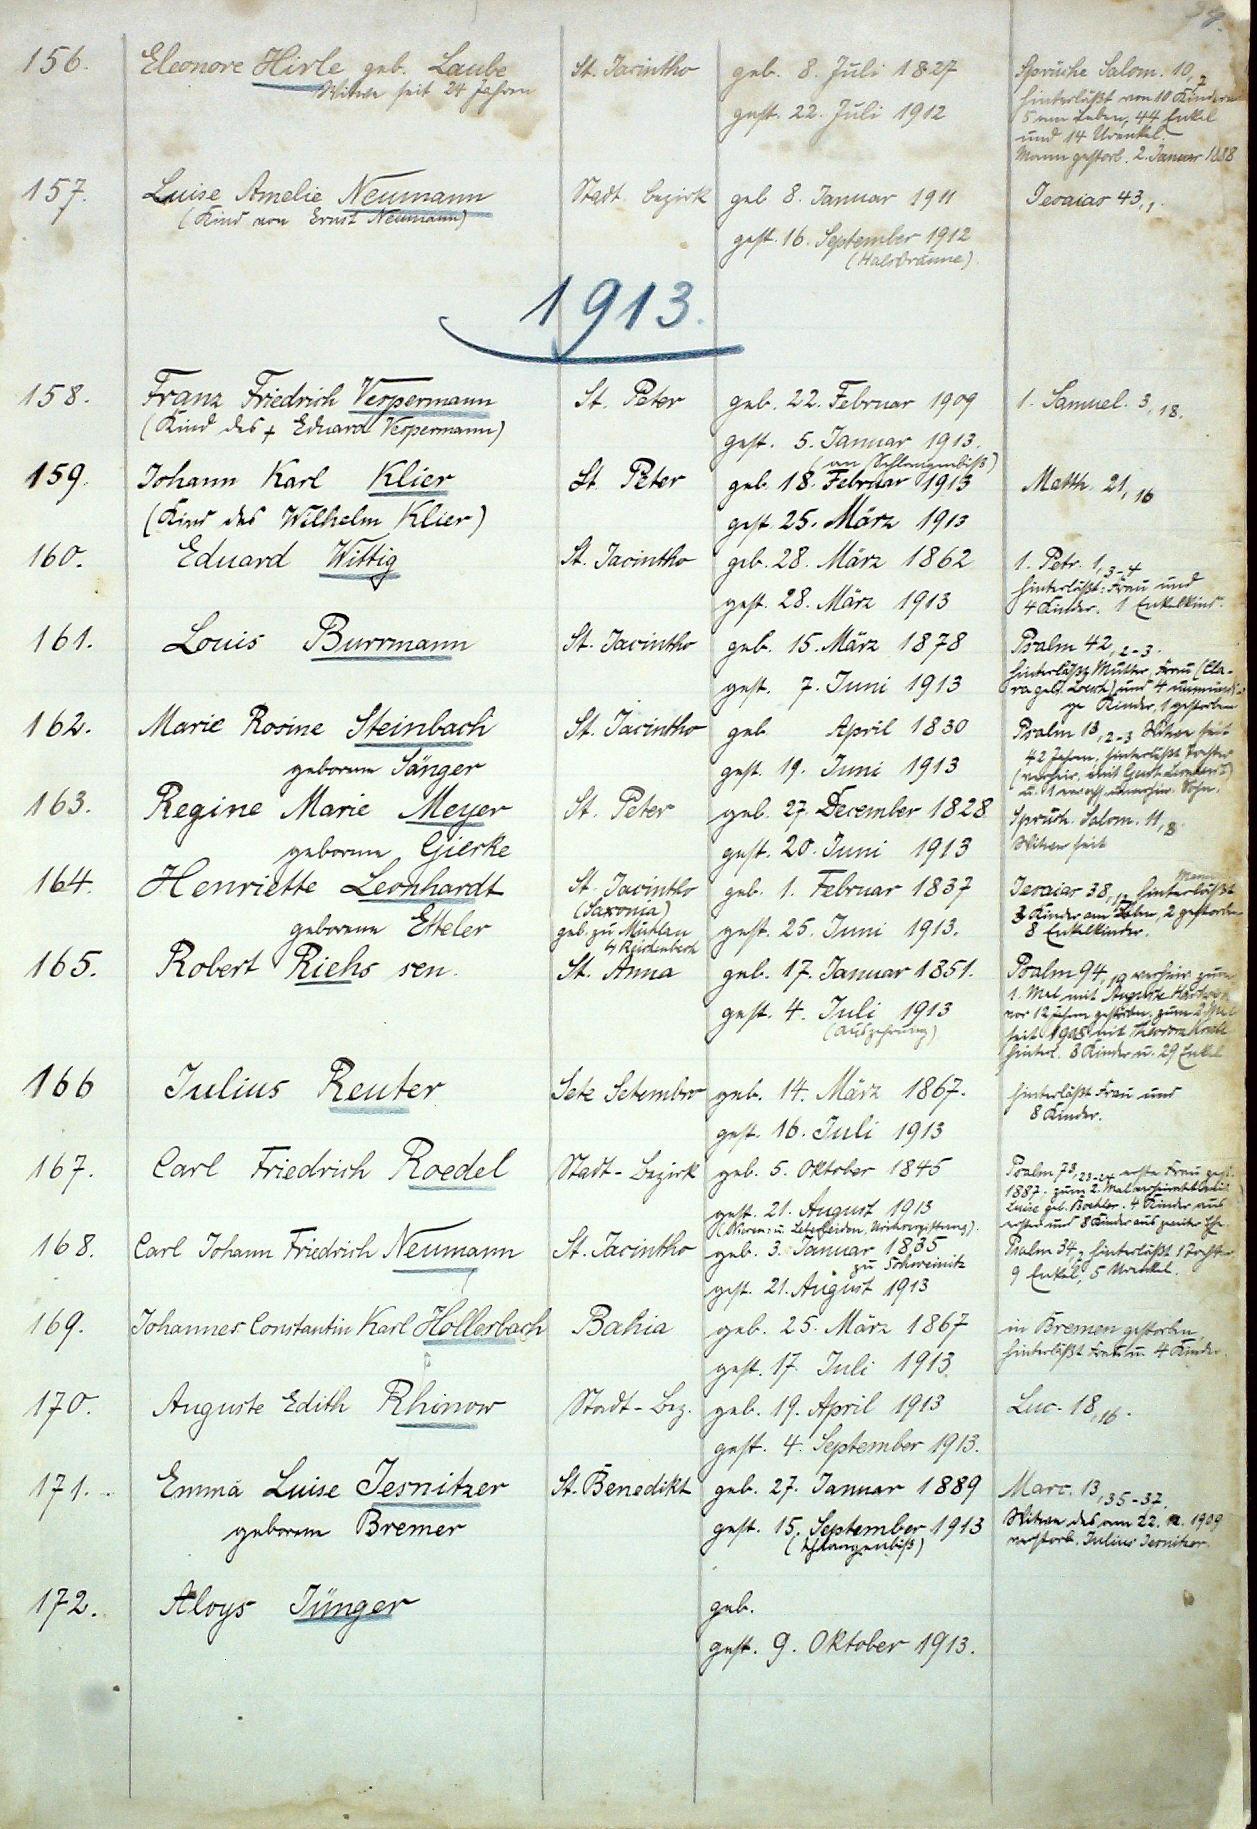 156. Eleonore Hirle geb. Laube St. Jacintho geb. 8. Juli 1827 Sprüche Salom. 10,7
Witwe seit 24 Jahren gest. 22. Juli 1912 hinterläßt von 10 Kindern
5 am Leben, 44 Enkel
und 14 Urenkel.
Mann gestorb. 2. Januar 1888
157. Luise Amelie Neumann Stadt bezirk geb 8. Januar 1911 Jesaias 43,1.
(Kind von Ernst Neumann)
gest. 16. September 1912
(Halsbräune)
1913.
158. Franz Friedrich Vespermann St. Peter geb. 22. Februar 1909 1. Samuel. 3,18.
(Kind des + Eduard Vespermann) gest. 5. Januar 1913.
(an Schlangenbiß)
159. Johann Karl Klier St. Peter geb. 18. Februar 1913 Matth. 21,16
(Kind des Wilhelm Klier) gest. 25. März 1913
160. Eduard Wittig St. Jacintho geb. 28. März 1862 1. Petr. 1,3-4
hinterläßt: Frau und
gest. 28. März 1913 4 Kinder. 1 Enkelkind.
161. Louis Burrmann St. Jacintho geb. 15. März 1878 Psalm 42,2-3.
hinterläßt Mutter, Frau (Cla-
gest. 7. Juni 1913 ra geb. und 4 unmündi-
ge Kinder, 1 gestorben
162. Marie Rosine Steinbach St. Jacintho geb April 1830 Psalm 13,2-3 Witwe seit
42 Jahren, hinterläßt Tochter
geborene Sänger gest. 19. Juni 1913 (verheir. mit Gust.
u. 1 Sohn.
163. Regine Marie Meyer St. Peter geb. 27. December 1828 Sprüch. Salom. 11,8.
geborene Gierke gest. 20. Juni 1913 Witwe seit
164. Henriette Leonhardt St. Jacintho geb. 1. Februar 1837 Jesaias 38, hinterläßt Mann
(Saxonia) 3 Kinder am Leben, 2 gestorben
geborene Etteler geb. zu Mühlau gest. 25. Juni 1913. 8 Enkelkinder.
b/ Reichenbach
165. Robert Riehs sen. St. Anna geb. 17. Januar 1851. Psalm 94,19 verheir. zum
1. Mal mit Auguste
gest. 4. Juli 1913 vor 12 Jahren gestorben, zum 2 Mal
(Auszehrung) seit 1903 mit Theodora
hinterl. 8 Kinder u. 29 Enkel
166 Julius Reuter Sete Setembro geb. 14. März 1867. hinterläßt Frau und
8 Kinder.
gest. 16. Juli 1913
167. Carl Friedrich Roedel Stadt-Bezirk geb. 5. Oktober 1845 Psalm 73,23-24 erste Frau gest.
1887. zum 2. Mal verheiratet mit
gest. 21. August 1913 Luise geb. 4 Kinder aus
(Nieren- u. Leberleiden, erster und 8 Kinder aus zweiter Ehe
168. Carl Johann Friedrich Neumann St. Jacintho geb. 3. Januar 1835 Psalm 34, hinterläßt 1 Tochter,
zu Schweinitz 9 Enkel, 5 Urenkel.
gest. 21. August 1913
169. Johannes Constantin Karl Hollerbach Bahia geb. 25. März 1867 in Bremen gestorben,
hinterläßt Frau u. 4 Kinder.
gest. 17. Juli 1913.
170. Auguste Edith Rhinow Stadt-Bez. geb. 19. April 1913 Luc. 18,16.
gest. 4. September 1913.
171. Emma Luise Jesnitzer St. Benedikt geb. 27. Januar 1889 Marc. 13,35-37.
geborene Bremer gest. 15. September 1913 Witwe des am 22. 1909
(Schlangenbiß) verstorb. Julius Jesnitzer.
172. Aloys Jünger geb.
gest. 9. Oktober 1913.